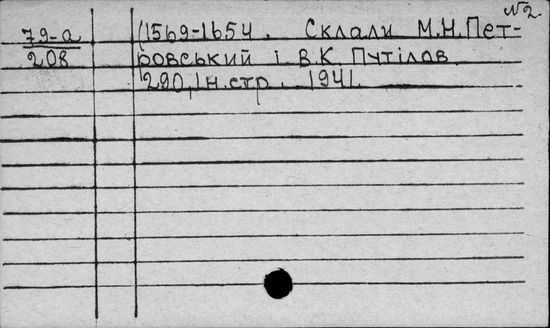 №2
79-а
208
(1569-1654. Склали М.Н.Пет-
ровський і В.К. Путілов.
290,1н.стр. 1941.